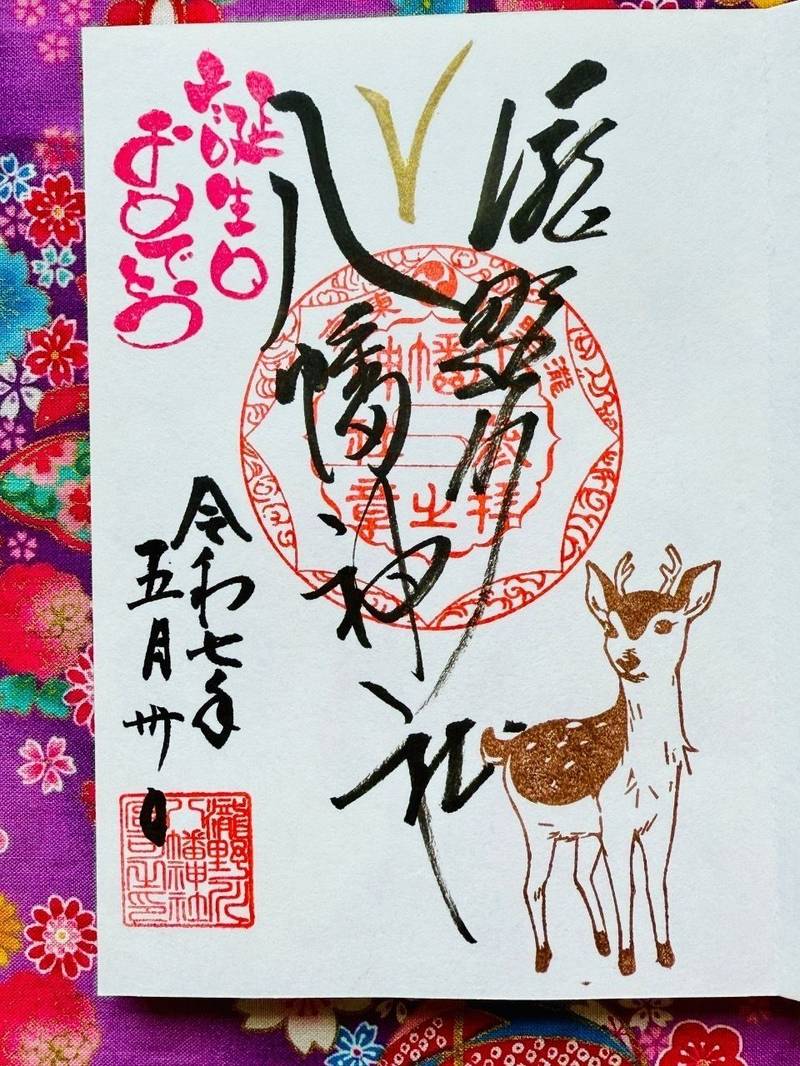 瀧野川
八幡神社
お誕生日
おめでとう
令和七年
五月卅日
瀧野川
八幡神社
宮司之印